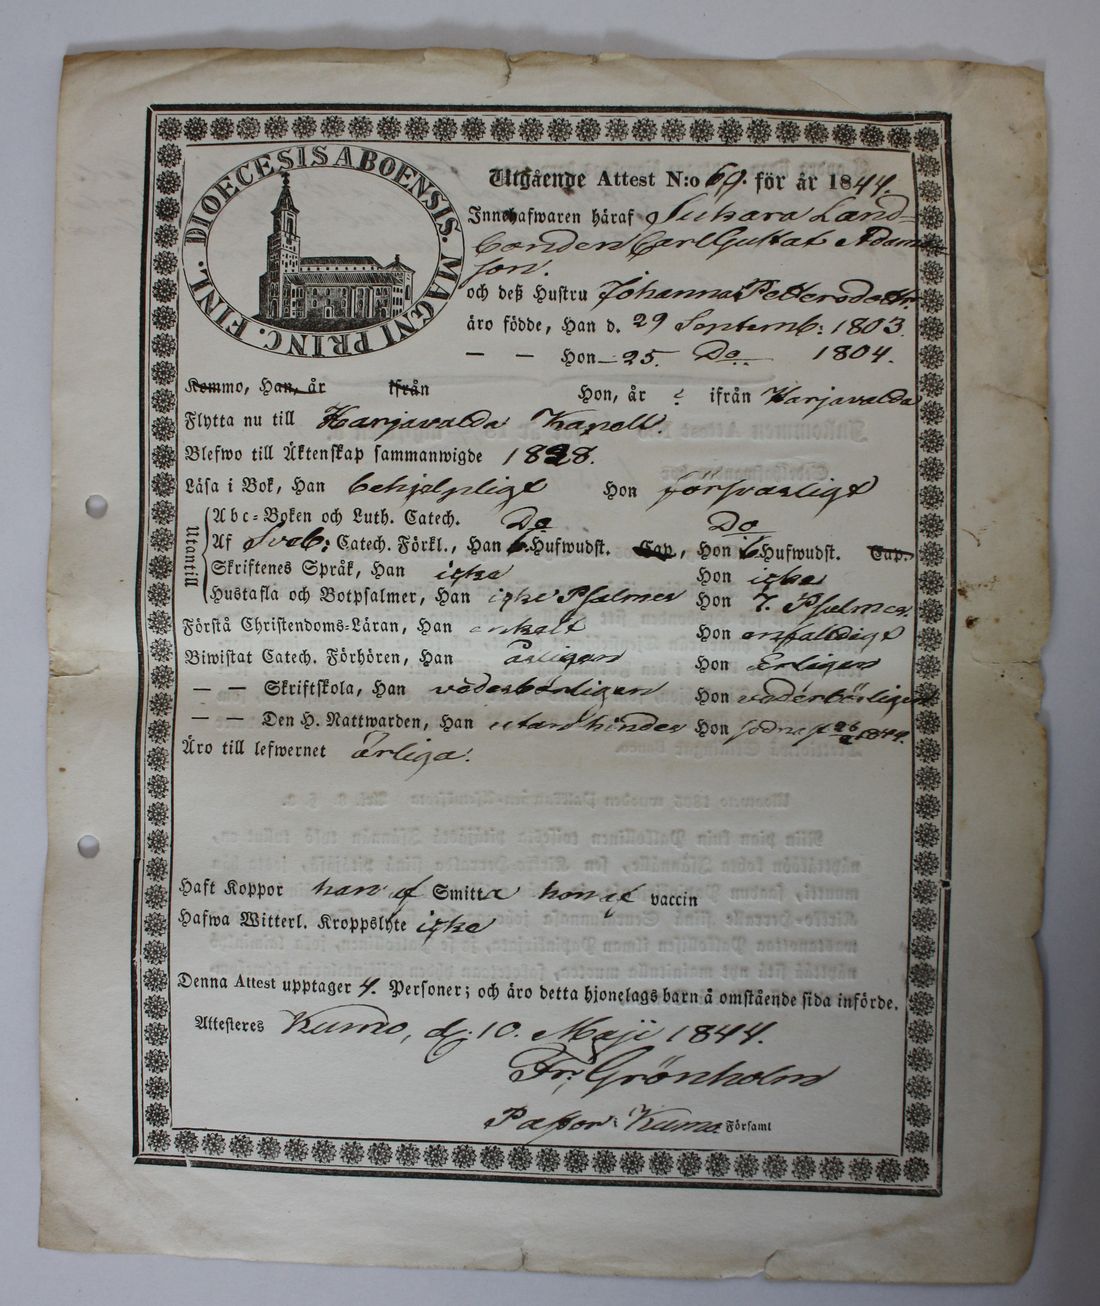 DIOECESIS ABOENSIS. MAGNI PRINC. FINL.
Utgående Attest N:o 69. för år 1844.
Innehafwaren häraf Suhara Land-
bonden Carl Gustaf Adams-
son.
och deß Hustru Johanna Petersdotr.
äro födde, Han d. 29 Septemb: 1803.
— — Hon — 25. Do 1804.
Kommo, Han, år ifrån Hon, år ? ifrån Harjavalda
Flytta nu till Harjavalda Kapell.
Blefwo till Äktenskap sammanwigde 1828.
Läsa i Bok, Han behjelpligt Hon försvarligt
Utantill
Abc-Boken och Luth. Catech. Do Do
Af Sveb: Catech. Förkl., Han 6 Hufwudst. Cap, Hon 6 Hufwudst. Cap.
Skriftenes Språk, Han icke Hon icke
Hustafla och Botpsalmer, Han icke Psalmer Hon 7. Psalmer.
Förstå Christendoms-Läran, Han enkelt Hon enfaldigt
Biwistat Catech. Förhören, Han årligen Hon årligen
— — Skriftskola, Han vederbörligen Hon vederbörligen
— — Den H. Nattwarden, Han utan hinder Hon sednast 1844.
Äro till lefwernet ärliga.
Haft Koppor han ej Smitta hon af vaccin
Hafwa Witterl. Kroppslyte icke
Denna Attest upptager 4. Personer; och äro detta hjonelags barn å omstående sida införde.
Attesteres Kumo, d: 10. Maji 1844.
Fr: Grönholm
Pastor: Kumo Församl